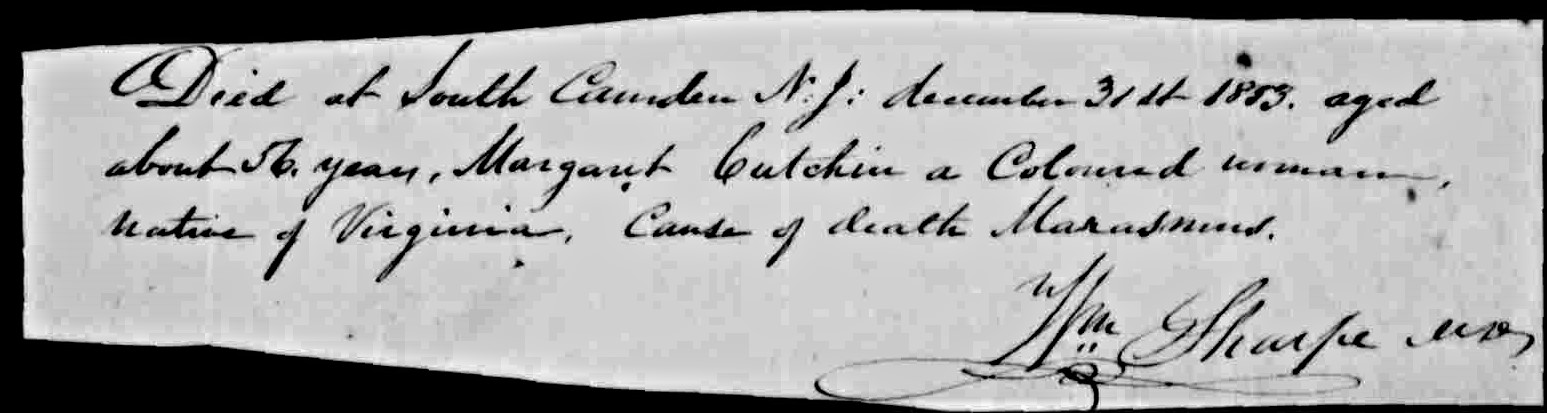 Died at South Camden N. J: december 31st 1853. aged
about 56. years, Margaret Cutchin a Coloured woman,
native of Virginia, Cause of death Marasmus.
Wm Sharpe MD,